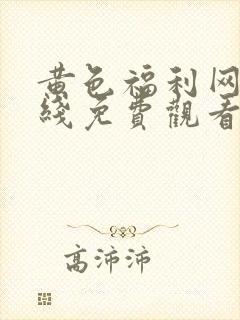 黄色福利网
綫免費觀看
高沛沛